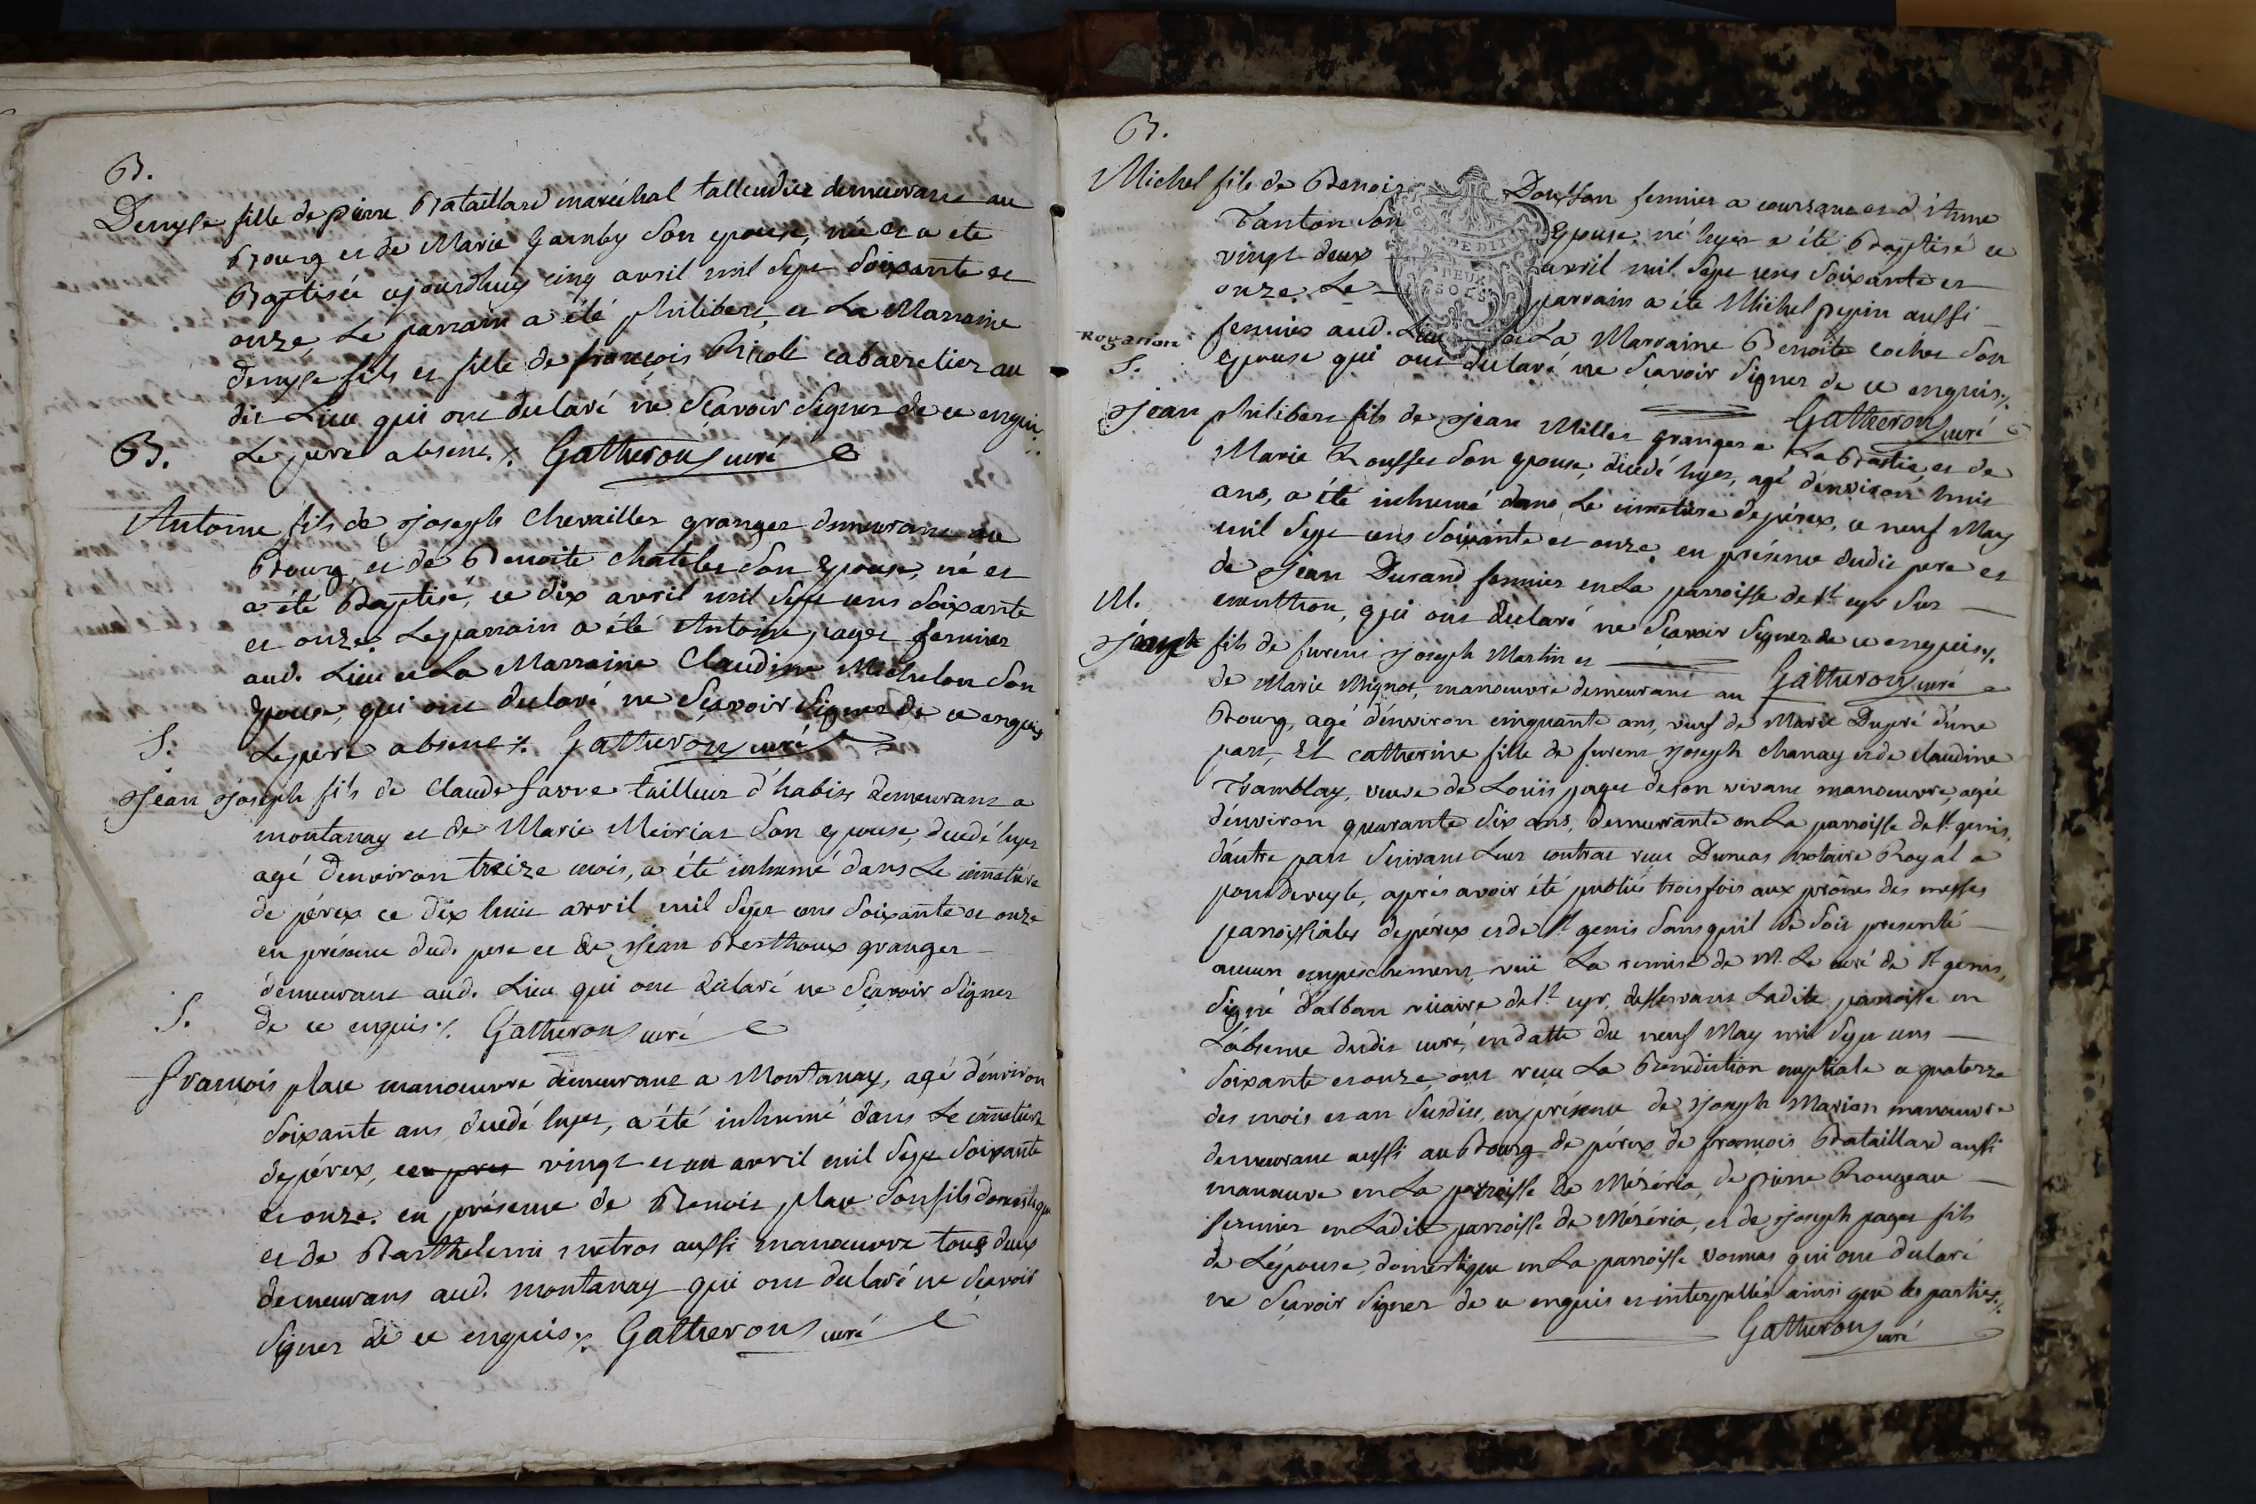 B.
Denyse fille de pierre Bataillard maréchal tallendier demeurant au
Bourg et de Marie Gamby son epouse, née et a été
Baptisée ajourdhuy cinq avril mil sept soixante et
onze, Le parrain a été philibert, et La Marraine
denyse fils et fille de françois Nicoli cabaretier au
dit Lieu qui ont declaré ne sçavoir signer de ce enquis
Le pere absent ./. Gatheron curé
B.
Antoine fils de joseph Chevaillier granger demeurant au
Bourg, et de Benoite Chatelet son Epouse, né et
a été Baptisé, ce dix avril mil sept cens soixante
et onze. Le parrain a été Antoine pagez fermier
aud. Lieu et La Marraine Claudine Michelon son
Epouse, qui ont declaré ne sçavoir signer de ce enquis
Le pere absent ./. Gatheron curé
S.
Jean joseph fils de Claude favre tailleur d'habits demeurant a
montanay et de Marie Meiriat son epouse, decedé hyer
agé d'environ treize mois, a été inhumé dans Le cimetiere
de pérex ce dix huit avril mil sept cens soixante et onze
en présence dud. pere et de Jean Berthoux granger
demeurant aud. Lieu qui ont declaré ne sçavoir signer
de ce enquis ./. Gatheron curé
S.
françois place manoeuvre demeurant a Montanay, agé d'environ
soixante ans decedé hyer, a été inhumé dans Le cimetiere
de pérex, vingt et un avril mil sept soixante
et onze. en présence de Benoit place son fils domestique
et de Barthelemi metros aussi manoeuvre tous deux
demeurans aud. montanay qui ont declaré ne sçavoir
signer de ce enquis ./. Gatheron curé
B.
Michel fils de Benoit Pousson fermier a coursant et d'Anne
Tanton son Epouse, né hyer a été Baptisé ce
vingt deux avril mil sept cens soixante et
onze. Le parrain a été Michel pepin aussi
Rogation
fermier aud. Lieu et La Marraine Benoite cochet son
epouse qui ont declaré ne sçavoir signer de ce enquis ./.
S.
Gatheron curé
Jean philibert fils de Jean Millet granger a La Bastie, et de
Marie Rousset son epouse, decedé hyer, agé d'environ huit
ans, a été inhumé dans Le cimetiere de pérex, ce neuf May
mil sept cens soixante et onze, en présence dudit pere et
de Jean Durand fermier en La parroisse de St cyr sur
menthon, qui ont declaré ne sçavoir signer de ce enquis ./.
M.
Gatheron curé
Joseph fils de furent Joseph Martin et
de Marie Mignot, manoeuvre demeurant au
Bourg, agé d'environ cinquante ans, veuf de Marie Dupré d'une
part, Et catherine fille de furent Joseph Chanay et de claudine
Tramblay, veuve de Loüis pagez de son vivant manoeuvre, agée
d'environ quarante six ans, demeurante en La parroisse de St genis,
d'autre part suivant Leur contrat reçu Dumas notaire Royal a
pondeveyle, aprés avoir été publiés trois fois aux prônes des messes
paroissiales de pérex et de St genis sans qu'il se soit presenté
aucun empeschement, veüe La remise de M. Le curé de St genis,
signé d'alban vicaire de St cyr, desservant Ladite parroisse en
L'absence dudit curé, en datte du neuf May mil sept cens
soixante et onze, ont reçu La Benediction nuptiale ce quatorze
des mois et an susdits, en présence de Joseph Marion manoeuvre
demeurant aussi au Bourg de pérex de françois Bataillard aussi
manoeuvre en La parroisse de Mézériä, de pierre Rougeau
fermier en Ladite parroisse de Mézériä, et de Joseph pagez fils
de L'épouse, domestique en La parroisse vonnas qui ont declaré
ne sçavoir signer de ce enquis et interpellés ainsi que les parties ./.
Gatheron curé